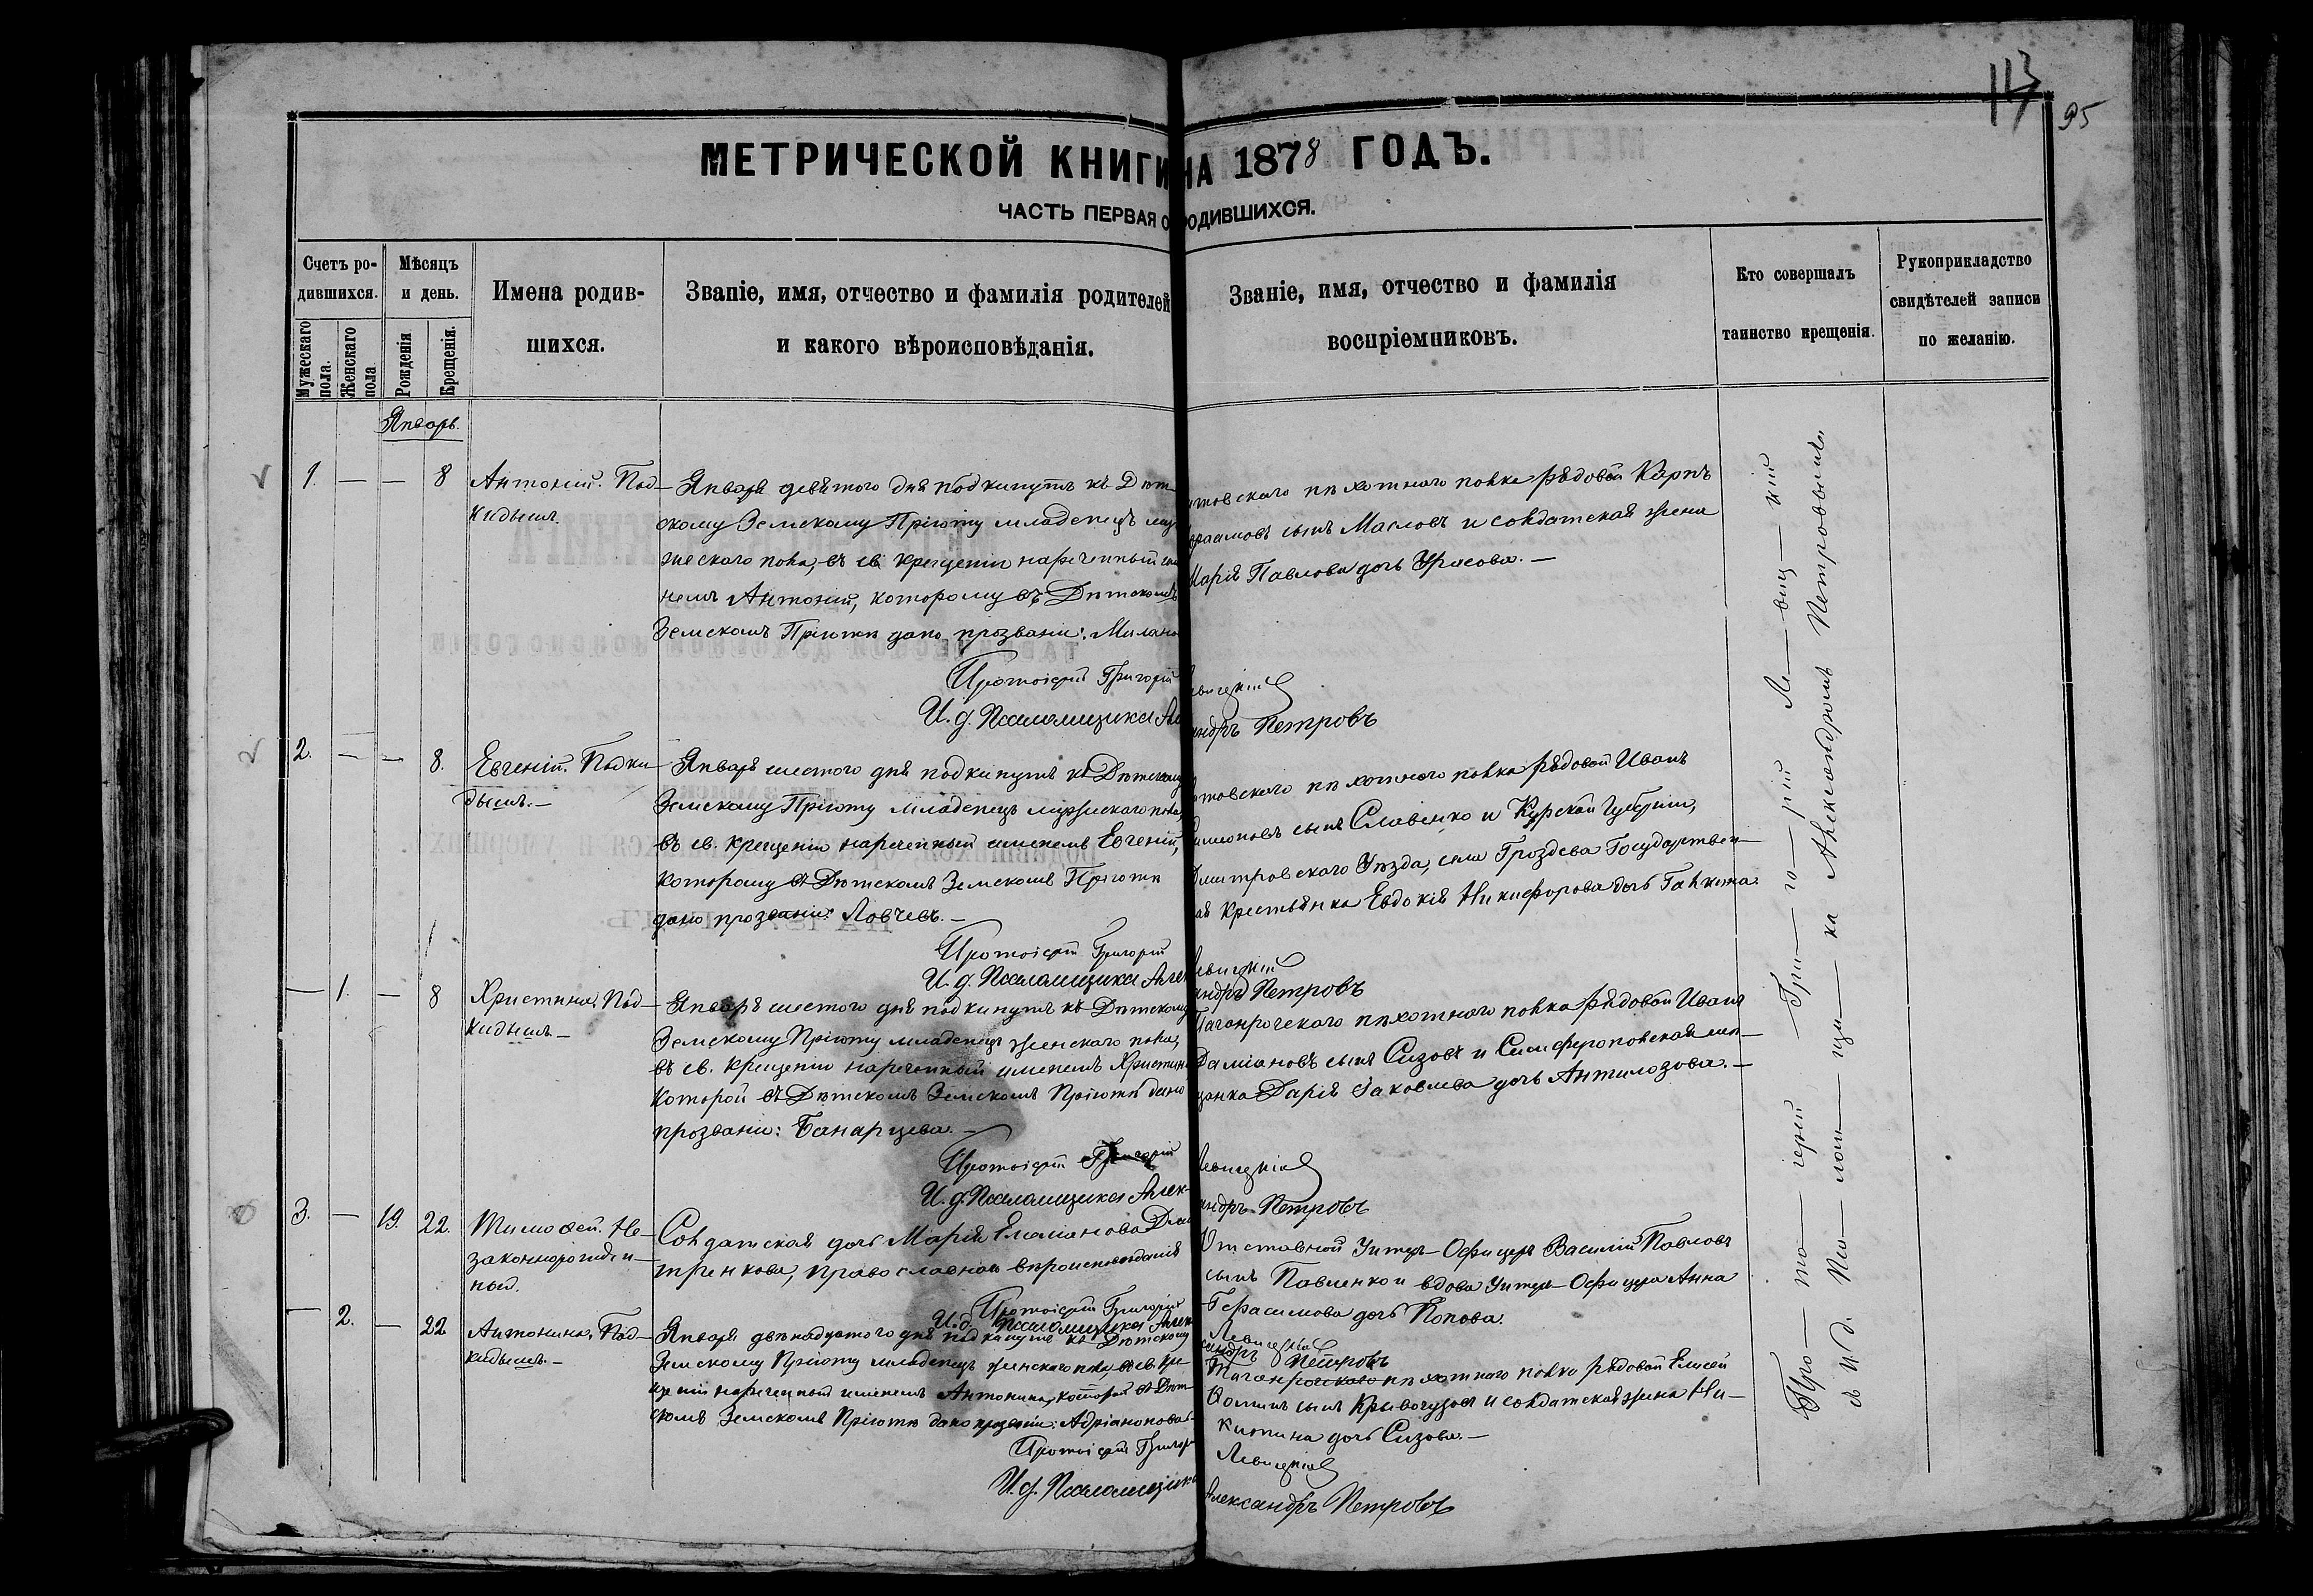 113
95
МЕТРИЧЕСКОЙ КНИГИ НА 1878 ГОДЪ.
ЧАСТЬ ПЕРВАЯ О РОДИВШИХСЯ.
Счетъ ро-
дившихся.
Мужескаго пола.
Женскаго пола
Мѣсяцъ
и день.
Рожденія
Крещенія.
Имена родив-
шихся.
Званіе, имя, отчество и фамилія родителей
и какого вѣроисповѣданія.
Званіе, имя, отчество и фамилія
воспріемниковъ.
Кто совершалъ
таинство крещенія.
Рукоприкладство
свидѣтелей записи
по желанію.
Январь.
1. — — 8
Антоній. Под-
кидышъ.
Января девятого дня подкинутъ къ Дѣт-
скому Земскому Пріюту младенецъ му
жескаго пола, въ св. крещеніи нареченный
немъ Антоній, которому въ Дѣтскомъ
Земскомъ Пріютѣ дано прозваніе: Милано
товскаго пѣхотнаго полка рядовой Карпъ
сынъ Масловъ и солдатская жена
Марія Павлова дочь Урасова. —
Протоіерей Григорій Левицкій
И. д. Псаломщика Александръ Петровъ
2. — — 8.
Евгеній. Подки-
дышъ. —
Января шестого дня подкинутъ къ Дѣтскому
Земскому Пріюту младенецъ мужескаго пола,
въ св. крещеніи нареченный именемъ Евгеній,
которому въ Дѣтскомъ Земскомъ Пріютѣ
дано прозваніе: Ловчевъ. —
товскаго пѣхотнаго полка рядовой Иванъ
Симоновъ сынъ Славенко и Курской Губерніи,
Дмитровскаго Уѣзда, села Гроздева Государствен-
ая крестьянка Евдокія Никифорова дочь Галкина.
Протоіерей Григорій Левицкій
И. д. Псаломщика Александръ Петровъ
— 1. — 8
Христина. Под-
кидышъ —
Января шестого дня подкинутъ къ Дѣтскому
Земскому Пріюту младенецъ женскаго пола,
въ св. крещеніи нареченный именемъ Христин
которой въ Дѣтскомъ Земскомъ Пріютѣ дано
прозваніе: Банарцева. —
Таганрогскаго пѣхотнаго полка рядовой Иванъ
Даміановъ сынъ Сизовъ и Симферопольская мѣ-
щанка Дарія Іаковлева дочь Антилозова. —
Протоіерей Григорій Левицкій
И. д. Псаломщика Александръ Петровъ
3. — 19. 22.
Тимоѳей. Не-
законнорожден-
ный.
Солдатская дочь Марія Емеліанова Дми
тренкова, православнаго вѣроисповѣданія
Отставной Унтеръ-Офицеръ Василій Павловъ
сынъ Павленко и вдова Унтеръ-Офицера Анна
Герасимова дочь Попова.
Протоіерей Григорій Левицкій
И. д. Псаломщика Александръ Петровъ
— 2. — 22
Антонина. Под-
кидышъ. —
Января двѣнадцатого дня подкинутъ къ Дѣтскому
Земскому Пріюту младенецъ женскаго пола, въ св. кре-
щеніи нареченный именемъ Антонина, которой въ Дѣт-
скомъ Земскомъ Пріютѣ дано прозваніе: Адріанопова.
Таганрогскаго пѣхотнаго полка рядовой Елисей
Ѳоминъ сынъ Кривогузовъ и солдатская жена Ни-
китина дочь Сизова. —
Протоіерей Григорій Левицкій
И. д. Псаломщика Александръ Петровъ
Про — то — іерей — Гри — го — рій Ле — виц — кій
съ И. д. Пса — лом — щи — ка Александромъ Петровымъ